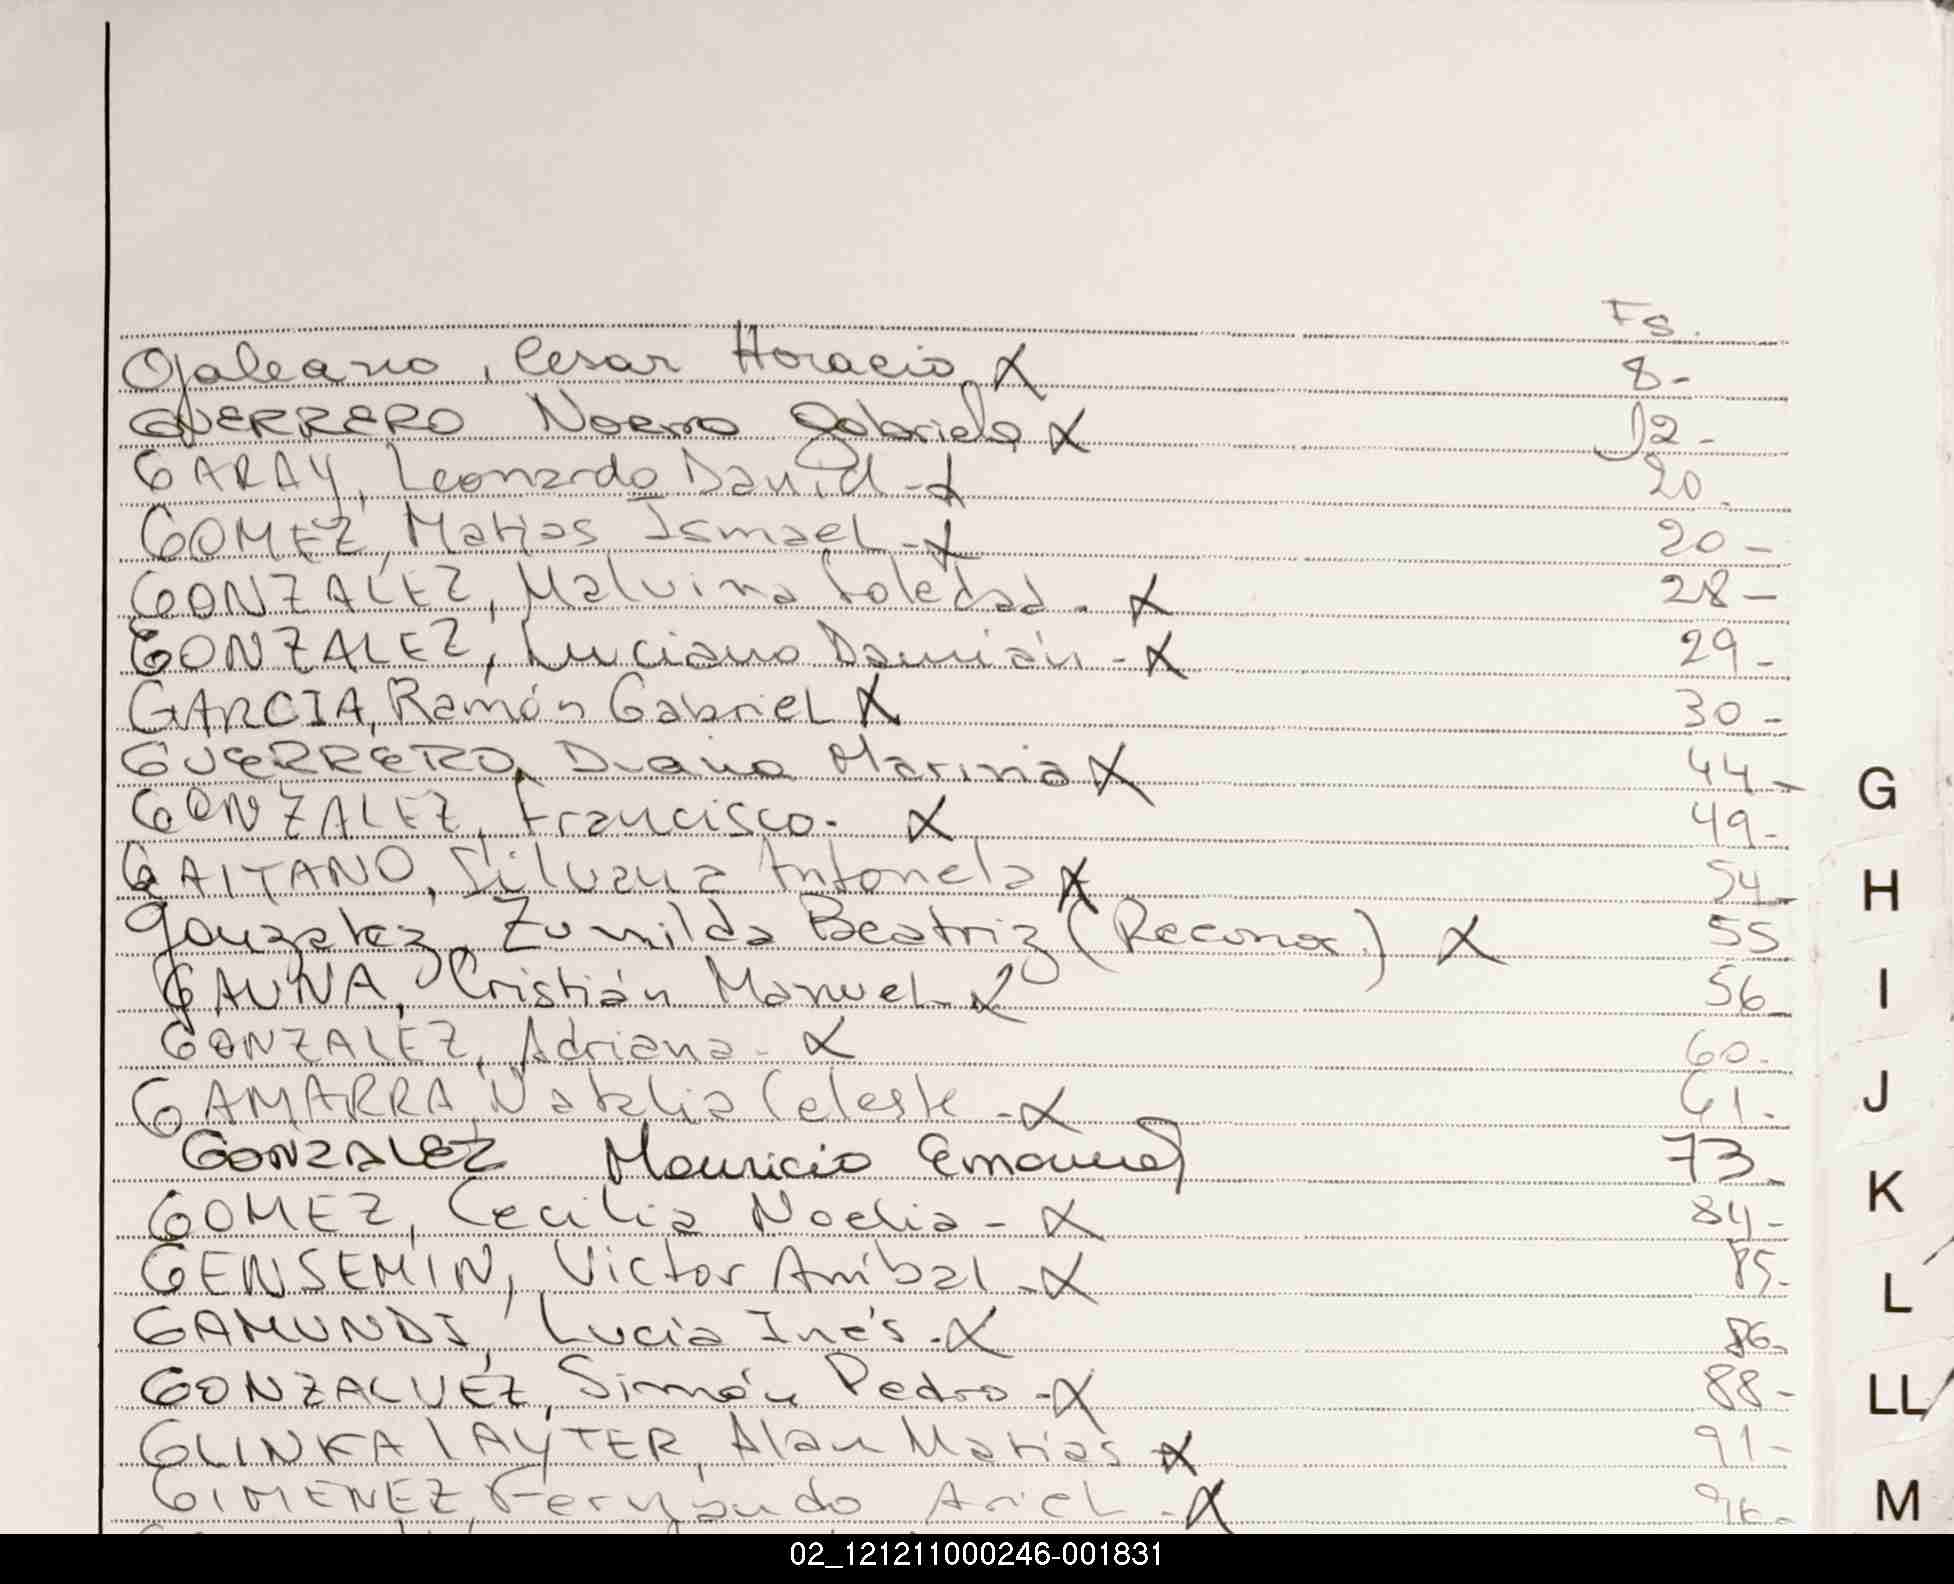 Fs.
Galeano, Cesar Horacio X 8-
GUERRERO Norma Gabriela X 12-
GARAY, Leonardo David - X 20-
GOMEZ, Matias Ismael - X 20-
GONZALEZ, Malvina Soledad - X 28-
GONZALEZ, Luciano Damián - X 29-
GARCIA, Ramón Gabriel X 30-
GUERRERO, Diana Marina X 44-
GONZALEZ, Francisco. X 49-
GAITANO, Silvana Antonela X 54-
Gonzalez, Zunilda Beatriz (Reconoc.) X 55
GAUNA, Cristián Manuel - X 56-
GONZALEZ, Adriana - X 60-
GAMARRA, Natalia Celeste - X 61-
GONZALEZ Mauricio Emanuel 73-
GOMEZ, Cecilia Noelia - X 84-
GENSEMIN, Victor Anibal - X 85-
GAMUNDI, Lucia Inés - X 86-
GONZALVEZ, Simón Pedro - X 88-
GLINKA LAYTER, Alan Matias X 91-
GIMENEZ, Fernando Ariel - X
G
H
I
J
K
L
LL
M
02_121211000246-001831